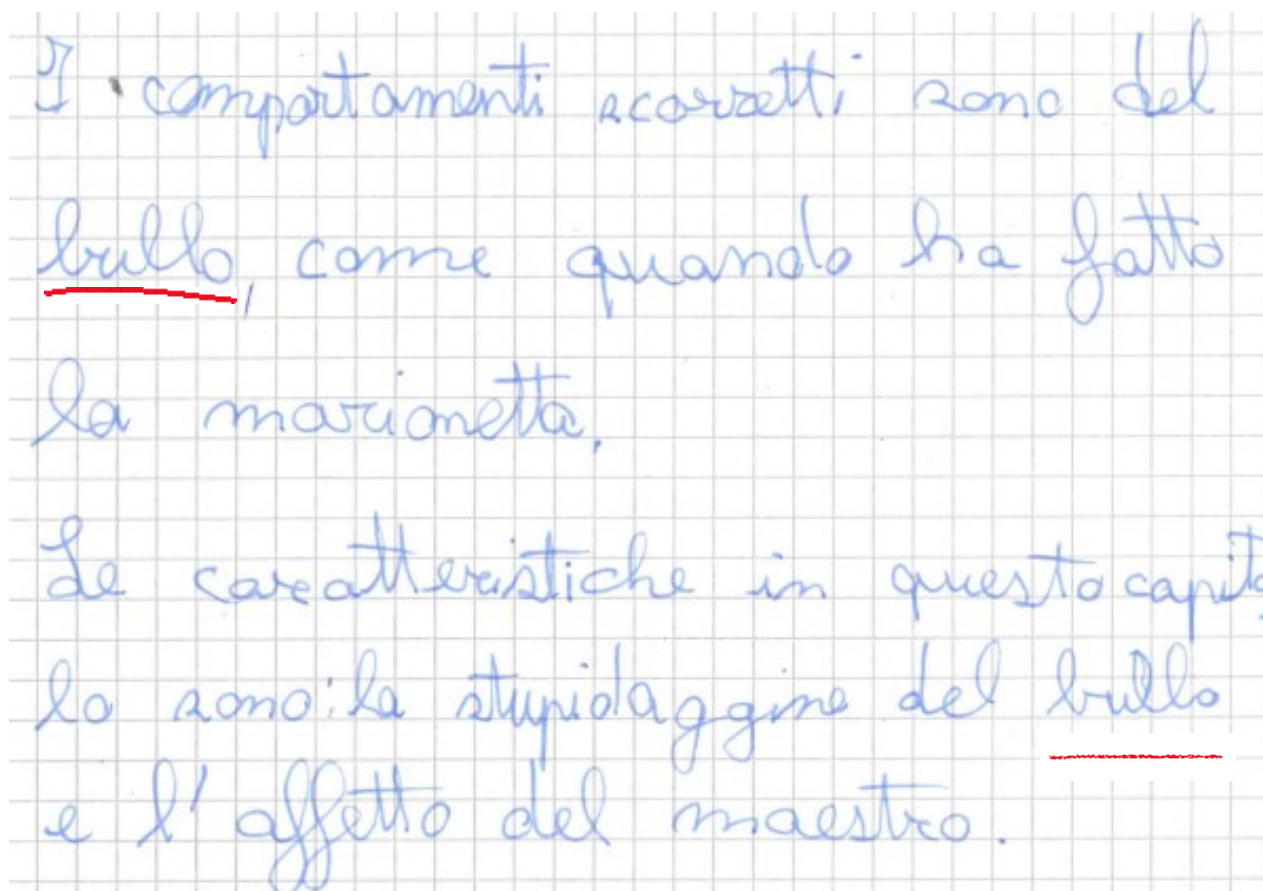 I comportamenti scorretti sono del
bullo, come quando ha fatto
la marionetta.
Le caratteristiche in questo capito
lo sono: la stupidaggine del bullo
e l'affetto del maestro.